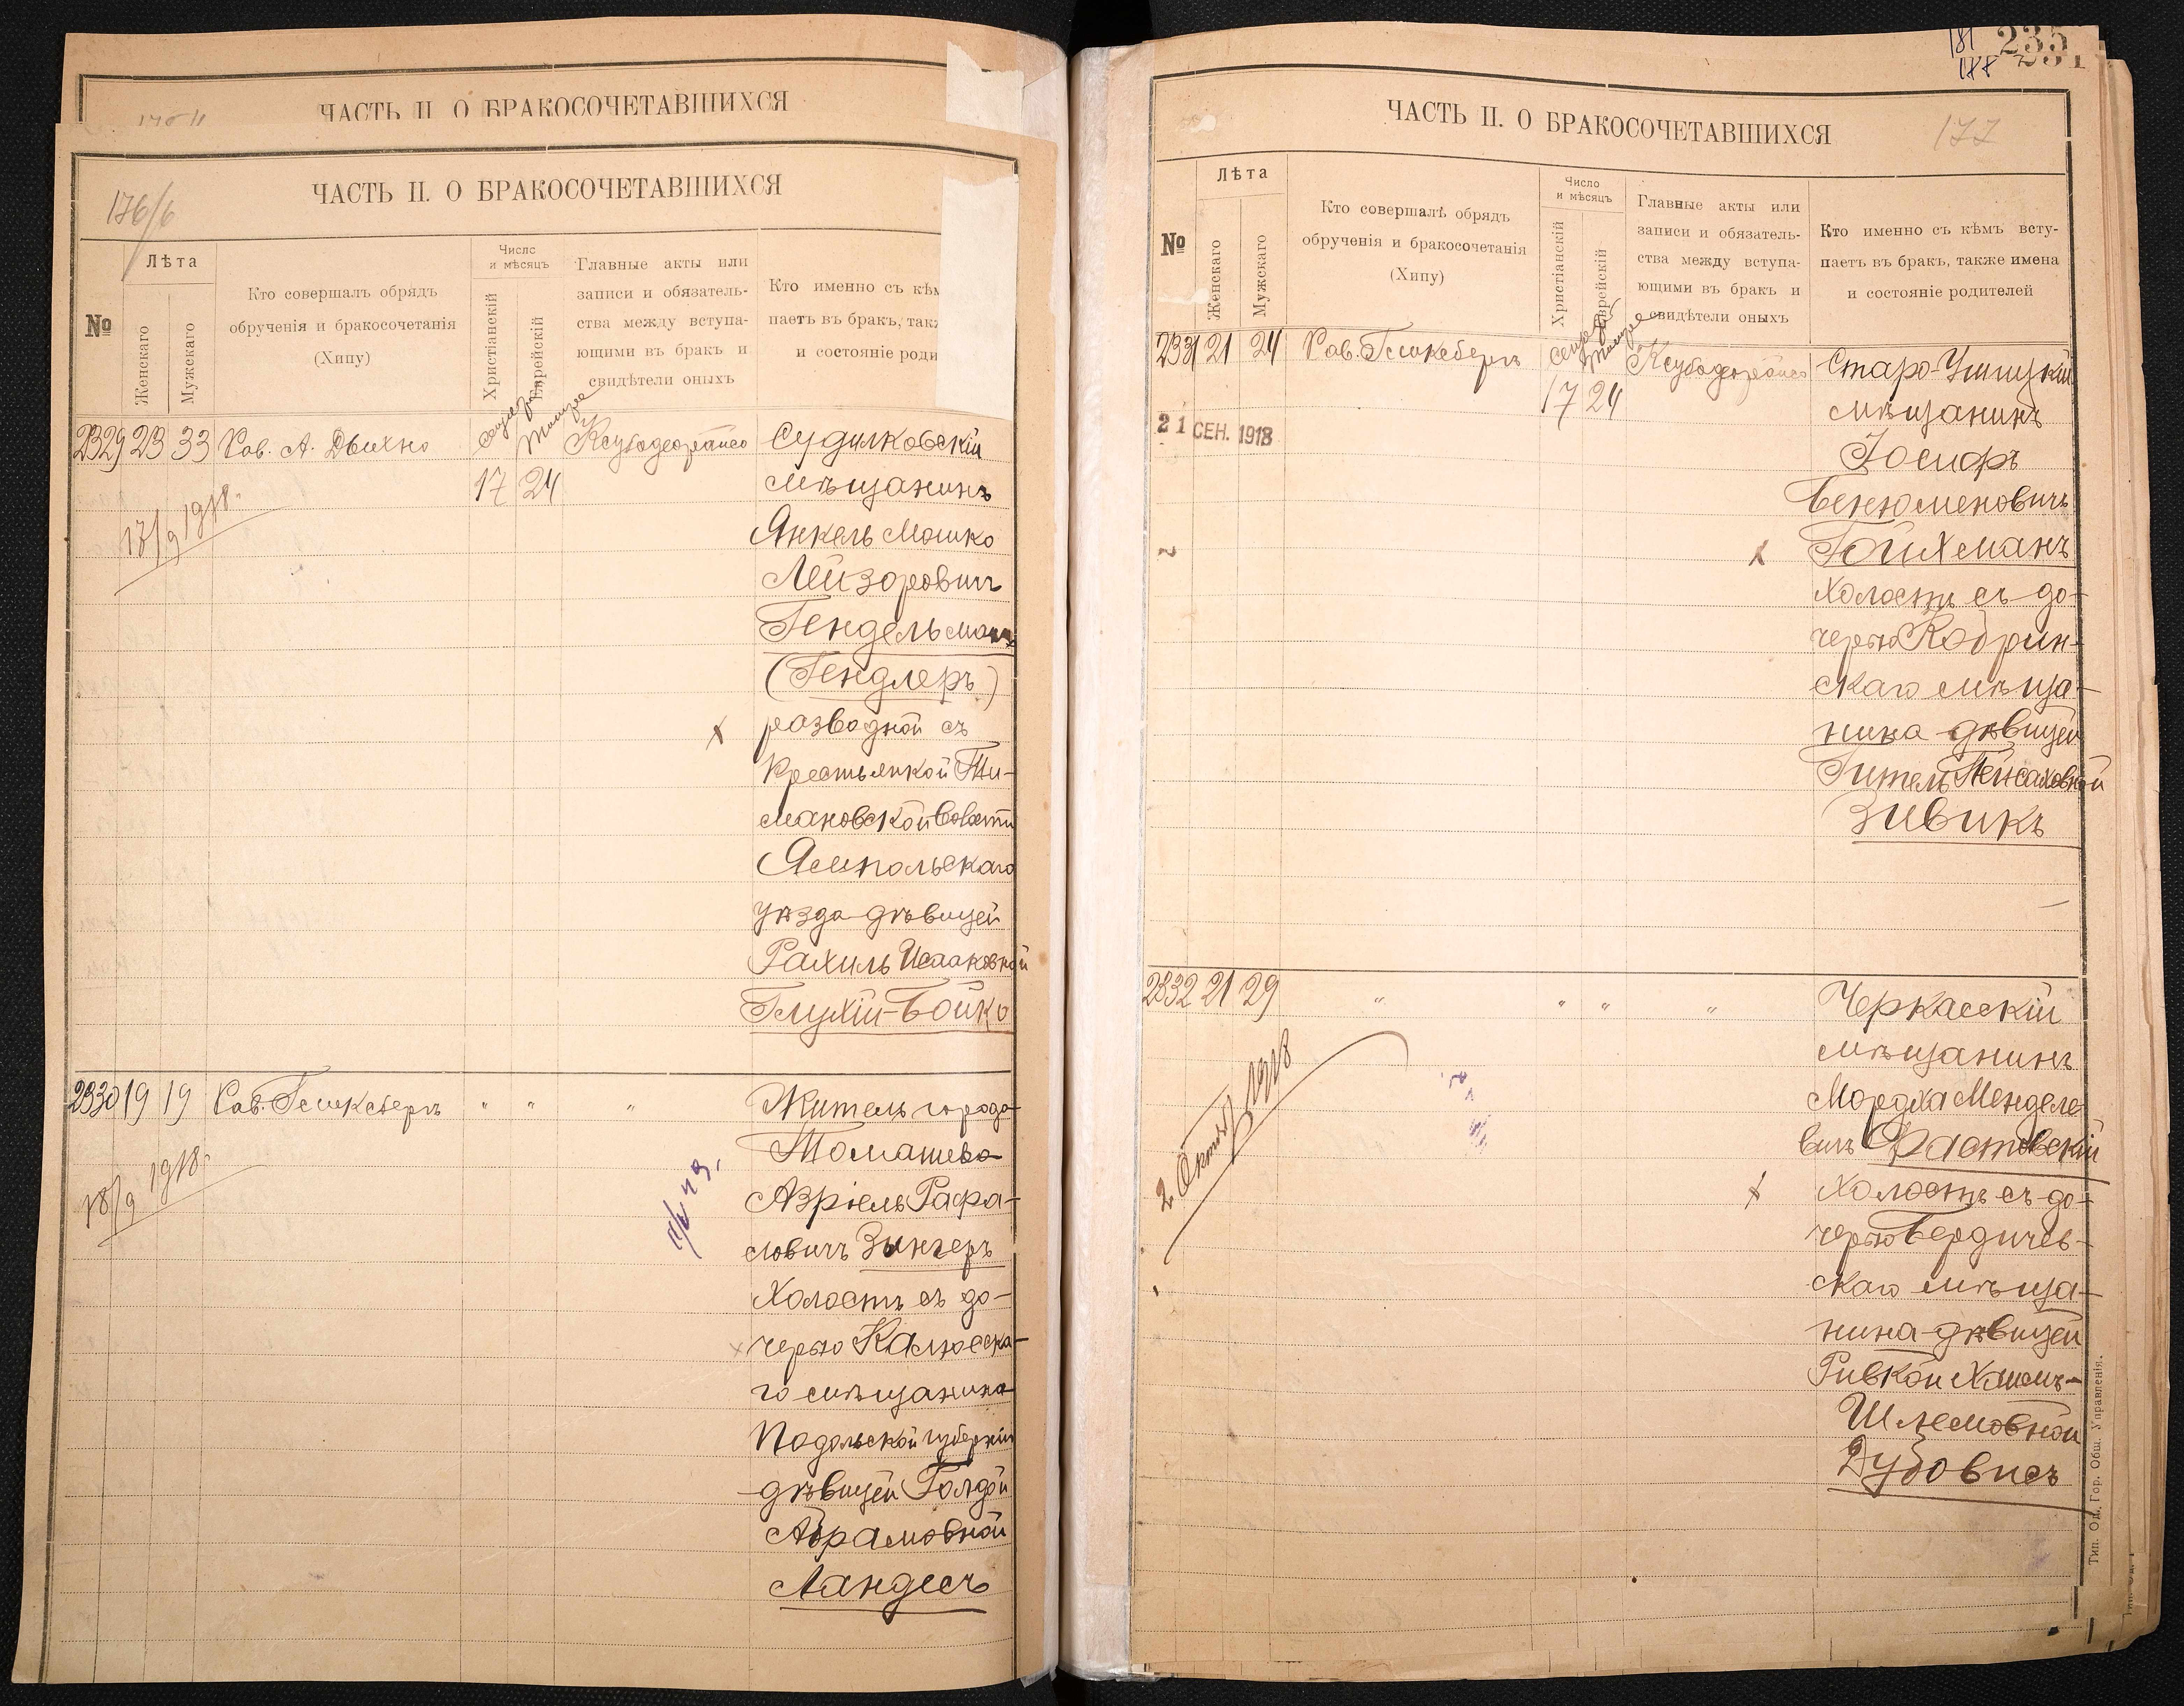 ЧАСТЬ II. О БРАКОСОЧЕТАВШИХСЯ
176/6
ЧАСТЬ II. О БРАКОСОЧЕТАВШИХСЯ
№
Лѣта
Женскаго
Мужскаго
Кто совершалъ обрядъ
обрученія и бракосочетанія
(Хипу)
Число
и мѣсяцъ
Христіанскій
Еврейскій
Главные акты или
записи и обязатель-
ства между вступа-
ющими въ бракъ и
свидѣтели оныхъ
Кто именно съ кѣм
паетъ въ бракъ, так
и состояніе роди
2329 23 33 Рав. А. Дыхно 17 24 Судилковскій
мѣщанинъ
17/9 1918.
Янкель Мошко
Лейзоровичъ
Гендельманъ
(Гендлеръ)
х разводной съ
крестьянкой Ти-
мановской волости
Ямпольскаго
уѣзда дѣвицей
Рахиль Исааковной
Глухій-Бойко
2330 19 19 Рав. Гликсбергъ " " " Житель города
Томашева
18/9 1918.
Азріель Рафа-
ловичъ Зингеръ
Холостъ съ до-
черью Калюсска-
го мѣщанина
Подольской губерніи
дѣвицей Голдой
Абрамовной
Ландесъ
181
188
235
ЧАСТЬ II. О БРАКОСОЧЕТАВШИХСЯ
177
№
Лѣта
Женскаго
Мужскаго
Кто совершалъ обрядъ
обрученія и бракосочетанія
(Хипу)
Число
и мѣсяцъ
Христіанскій
Еврейскій
Главные акты или
записи и обязатель-
ства между вступа-
ющими въ бракъ и
свидѣтели оныхъ
Кто именно съ кѣмъ всту-
паетъ въ бракъ, также имена
и состояніе родителей
2331 21 24 Рав. Гликсбергъ 17 24 Старо-Ушицкій
мѣщанинъ
21 СЕН. 1918
Іосифъ
Бенюменовичъ
х Гойхманъ
холостъ съ до-
черью Кобрин-
скаго мѣща-
нина дѣвицей
Гитель Пейсаховной
Зивикъ
2332 21 29 " " " " Черкасскій
мѣщанинъ
2 Октяб 1918
Мордха Менделе-
вичъ Фастовскій
х Холостъ съ до-
черью Бердичев-
скаго мѣща-
нина дѣвицей
Ривкой Хаимъ-
Шлемовной
Дубовисъ
Тип. Од. Гор. Общ. Управленія.